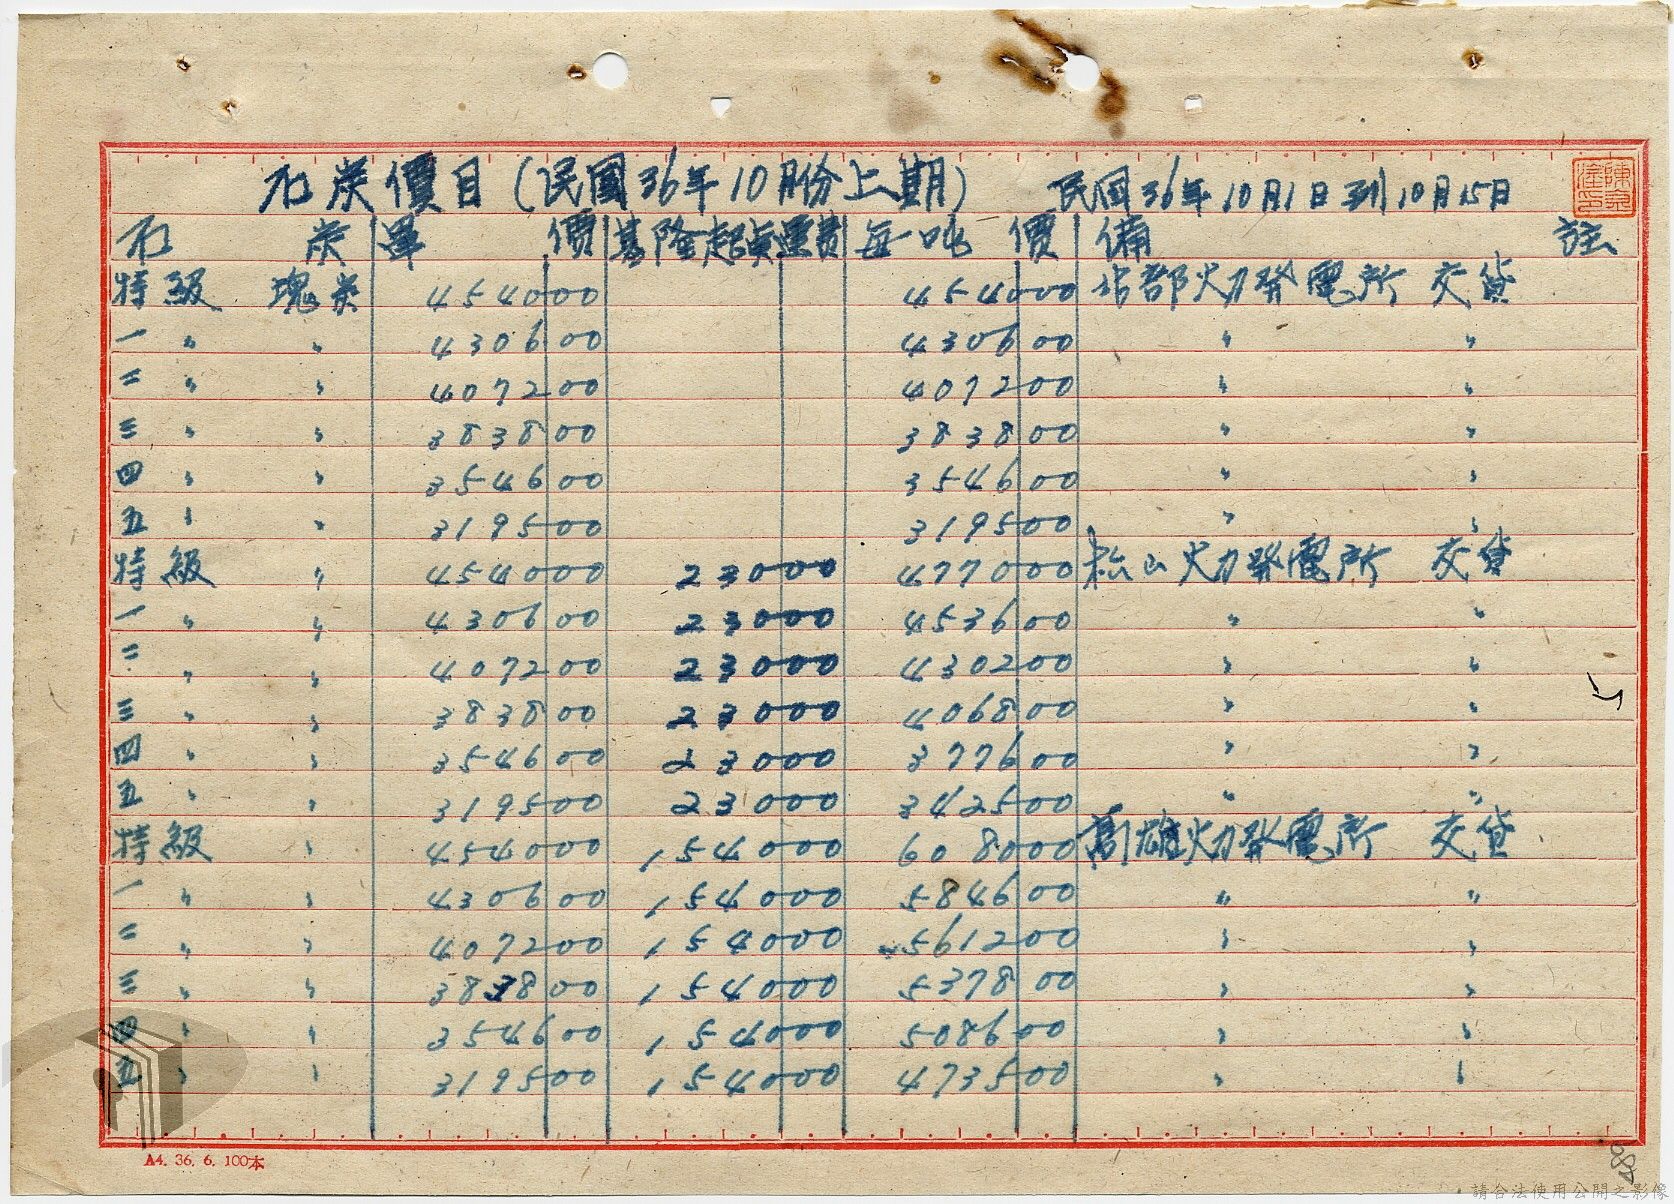 石炭價目(民國36年10月份上期) 民國36年10月1日到10月15日
石 炭 單 價 基隆起運費 每吨價 備 註
特級 塊炭 4540 00 4540 00 北部火力發電所 交貨
一 〃 〃 4306 00 4306 00 〃 〃
二 〃 〃 4072 00 4072 00 〃 〃
三 〃 〃 3838 00 3838 00 〃 〃
四 〃 〃 3546 00 3546 00 〃 〃
五 〃 〃 3195 00 3195 00 〃 〃
特級 〃 4540 00 230 00 4770 00 松山火力發電所 交貨
一 〃 〃 4306 00 230 00 4536 00 〃 〃
二 〃 〃 4072 00 230 00 4302 00 〃 〃
三 〃 〃 3838 00 230 00 4068 00 〃 〃
四 〃 〃 3546 00 230 00 3776 00 〃 〃
五 〃 〃 3195 00 230 00 3425 00 〃 〃
特級 〃 4540 00 1540 00 6080 00 高雄火力發電所 交貨
一 〃 〃 4306 00 1540 00 5846 00 〃 〃
二 〃 〃 4072 00 1540 00 5612 00 〃 〃
三 〃 〃 3838 00 1540 00 5378 00 〃 〃
四 〃 〃 3546 00 1540 00 5086 00 〃 〃
五 〃 〃 3195 00 1540 00 4735 00 〃 〃
A4. 36. 6. 100本
請合法使用公開之影像